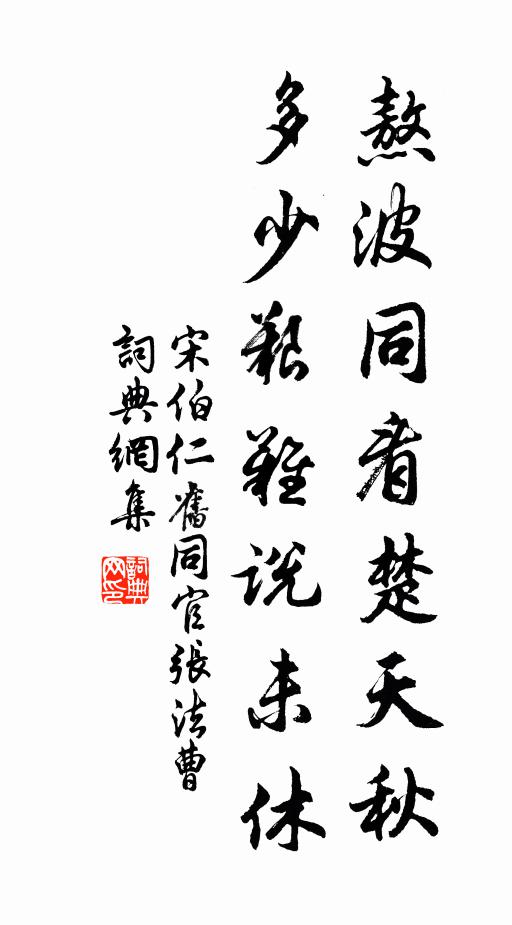 熬波同看楚天秋
多少艱難説未休
宋伯仁舊同官張法曹
詞典網集
詞典网印